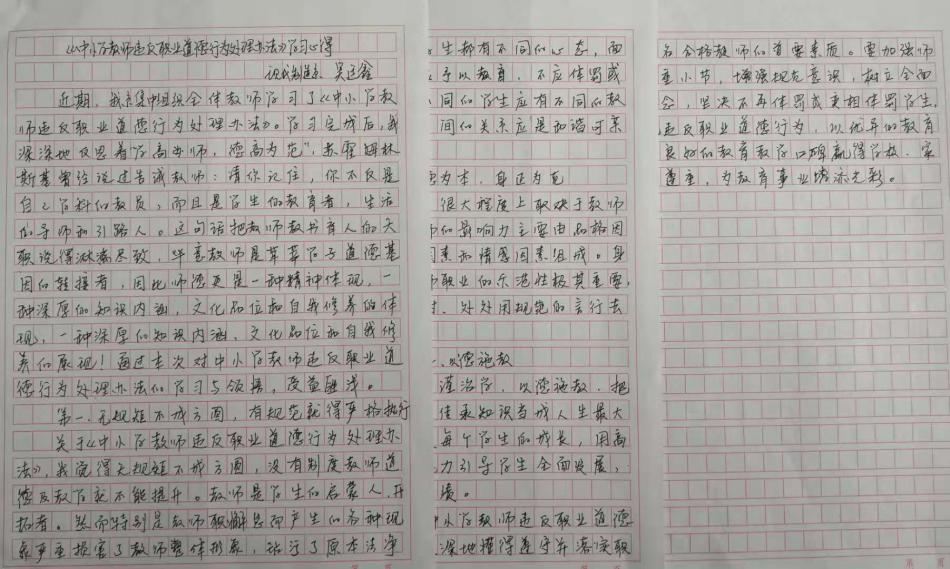 《中小学教师违反职业道德行为处理办法》学习心得
现代制造系 吴廷鑫
近期，我系集中组织全体教师学习了《中小学教
师违反职业道德行为处理办法》。学习完成后，我
深深地反思着“学高为师，德高为范”，苏霍姆林
斯基曾经说过告诫教师：请你记住，你不仅是
自己学科的教员，而且是学生的教育者，生活
的导师和引路人。这句话把教师教书育人的天
职说得淋漓尽致，毕竟教师是莘莘学子道德基
因的转接者，因此师德更是一种精神体现，一
种深厚的知识内涵，文化品位和自我修养的体
现，一种深厚的知识内涵、文化品位和自我修
养的展现！通过本次对中小学教师违反职业道
德行为处理办法的学习与领悟，受益匪浅。
第一、无规矩不成方圆，有规范就得严格执行
关于《中小学教师违反职业道德行为处理办
法》，我觉得无规矩不成方圆，没有制度教师道
德及教学就不能提升。教师是学生的启蒙人、开
拓者。然而特别是教师职 而产生的各种现
象严重损害了教师整体形象，玷污了原本法净
生都有不同的心态，面
予以教育，不应体罚或
同的学生应有不同的教
间的关系应是和谐可亲
为本，身正为范
很大程度上取决于教师
的影响力主要由品格因
素和情感因素组成。身
职业的示范性极其重要，
处处用规范的言行去
、以德施教
谨治学，以德施教，把
传承知识当成人生最大
每个学生的成长，用高
力引导学生全面发展，
绩。
小学教师违反职业道德
深地懂得遵守并落实职
名合格教师的首要素质。要加强师
重小节，增强规范意识，树立全面
念，坚决不再体罚或变相体罚学生，
违反职业道德行为，以优异的教育
良好的教育教学口碑赢得学校、家
尊重，为教育事业增添光彩。